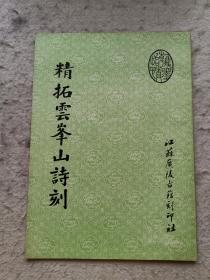 精拓雲峯山詩刻
江蘇廣陵古籍刻印社